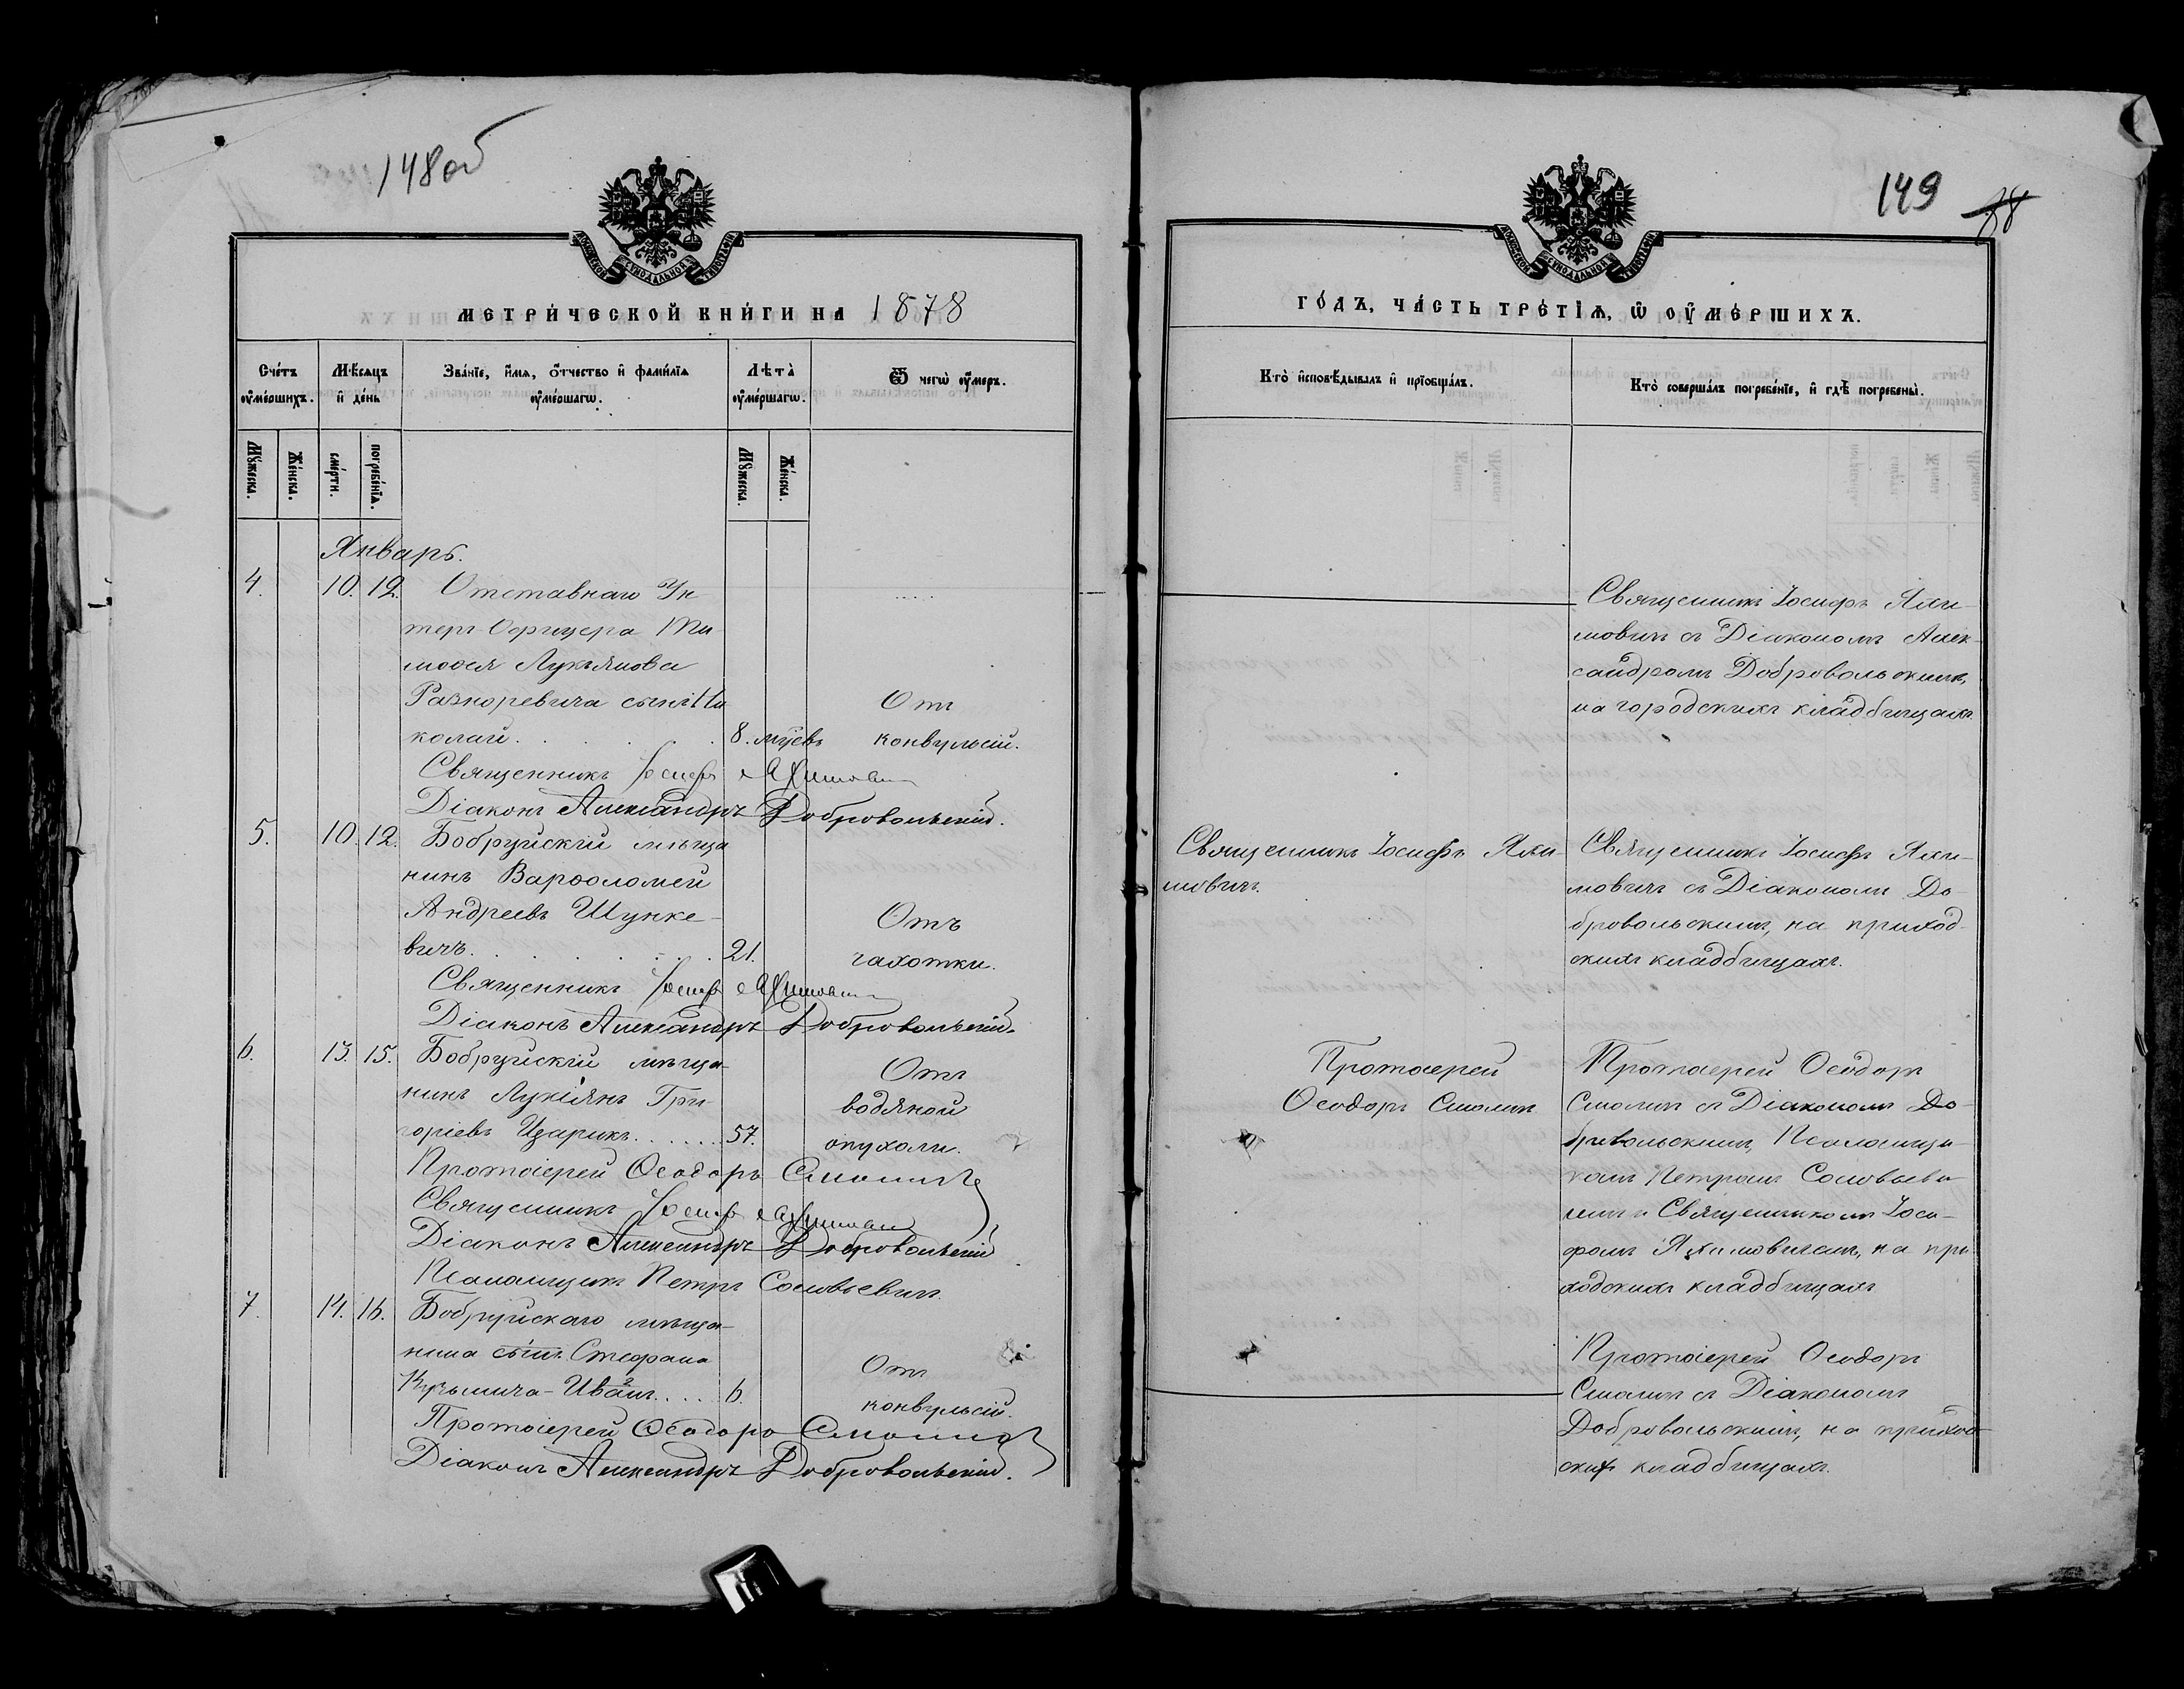 148об
МОСКОВСКОЙ СѴНОДАЛЬНОЙ ТИПОГРАФІИ
МЕТРИ́ЧЕСКОЙ КНИ́ГИ НА 1878
Сче́тъ ᲂу҆ме́ршихъ.
Мѣ́сяцъ и҆ де́нь
Зва́нїе, и҆́мѧ, ѻ҆́тчество и҆ фами́лїѧ ᲂу҆ме́ршагѡ.
Лѣ́та ᲂу҆ме́ршагѡ.
Ѿ чегѡ̀ ᲂу҆́меръ.
Мꙋ́жеска.
Же́нска.
сме́рти.
погребе́нїѧ.
Мꙋ́жеска.
Же́нска.
Январь.
4. 10. 12. Отставнаго Ун
теръ-Офицера Ти-
моѳея Лукьянова
Разноревича сынъ Ни
колай. 8. мцѣвъ
Отъ
конвульсій.
Священникъ Іосифъ Яхимовичъ
Діаконъ Александръ Добровольскій.
5. 10. 12. Бобруйскій мѣща
нинъ Варѳоломей
Андреевъ Шунке-
вичъ. 21.
Отъ
чахотки.
Священникъ Іосифъ Яхимовичъ
Діаконъ Александръ Добровольскій.
6. 13. 15. Бобруйскій мѣща-
нинъ Лукіянъ Гри-
горіевъ Царикъ. 57.
Отъ
водяной
опухоли.
Протоіерей Ѳеодоръ Смолинъ
Священникъ Іосифъ Яхимович
Діаконъ Александръ Добровольскій
Псаломщикъ Петръ Соловьевичъ.
7. 14. 16. Бобруйскаго мѣща-
нина сынъ Стефана
Кузьмича-Иванъ. 6.
Отъ
конвульсій.
Протоіерей Ѳеодоръ Смолинъ
Діаконъ Александръ Добровольскій.
149 88
МОСКОВСКОЙ СѴНОДАЛЬНОЙ ТИПОГРАФІИ
ГО́ДЪ, ЧА́СТЬ ТРЕ́ТЇѦ, Ѡ҆ ОУ҆МЕ́РШИХЪ.
Кто̀ и҆сповѣ́дывалъ и҆ прїѡбща́лъ.
Кто̀ соверша́лъ погребе́нїе, и҆ гдѣ̀ погребены̀.
Священникъ Іосифъ Яхи-
мовичъ съ Діакономъ Алек-
сандромъ Добровольскимъ,
на городскихъ кладбищахъ.
Священникъ Іосифъ Яхи
мовичъ.
Священникъ Іосифъ Яхи-
мовичъ съ Діакономъ До-
бровольскимъ, на приход-
скихъ кладбищахъ.
Протоіерей
Ѳеодоръ Смолинъ
Протоіерей Ѳеодоръ
Смолинъ съ Діакономъ До-
бровольскимъ, Псаломщи-
комъ Петромъ Соловьеви
чемъ и Священникомъ Іоси-
фомъ Яхимовичемъ, на при
ходскихъ кладбищахъ
Протоіерей Ѳеодоръ
Смолинъ съ Діакономъ
Добровольскимъ, на приход
скихъ кладбищахъ.